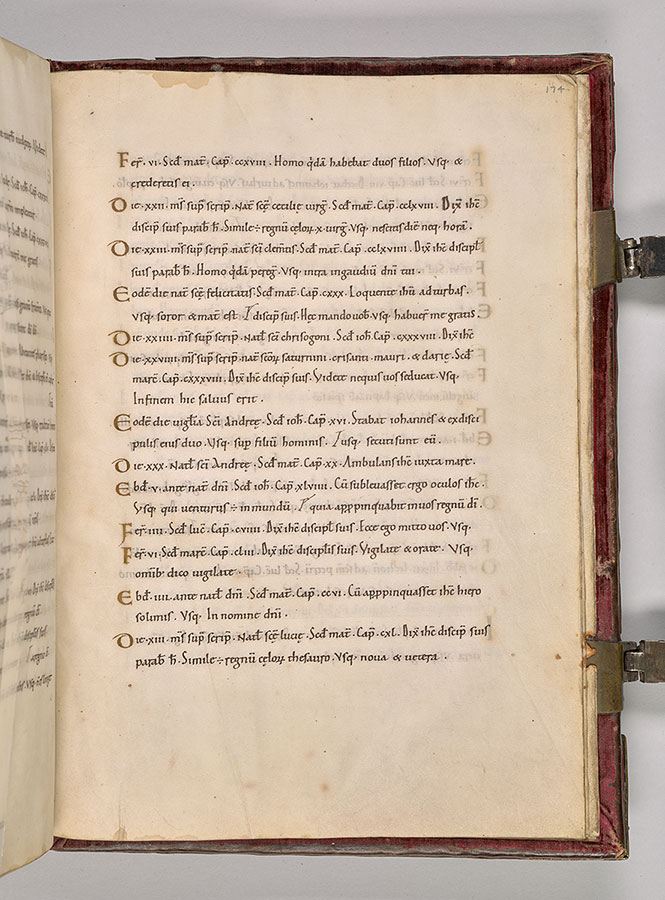 174
Fer̄. vi. Sc̄d mat̄. Cap̄. ccxviii. Homo qͥdā habebat duos filios. Vsq; &
crederetis ei.
Die. xxii. m̄s sup̄ scrip̄. Nat̄ sc̄ę cecilię uirḡ. Sc̄d mat̄. Cap̄. cclxviii. Dix̄ ih̄c
discip̄ suis parab̄ h̄. Simile ÷ regnū cęloꝝ x. uirḡ. Vsq; nescitis diē neq; horā.
Die. xxiii. m̄s sup̄ scrip̄. nat̄ sc̄i clem̄tis. Sc̄d mat̄. Cap̄. cclxviiii. Dix̄ ih̄c discipl̄
suis parab̄ h̄. Homo qͥdā peregr̄. Vsq; intra ingaudiū dn̄i tui.
Eodē die nat̄ sc̄ę felicitatis Sc̄d mat̄. Cap̄. cxxx. Loquente ih̄u ad turbas.
Vsq; soror & mat̄ est. discip̄ suis. Hęc mando uob̄. Vsq; habuer̄ me gratis.
Die. xxiiii. m̄s sup̄ scrip̄. Natl̄ sc̄i chrisogoni. Sc̄d ioh̄. Cap̄. cxxxviii. Dix̄ ih̄c
Die. xxviiii. m̄s sup̄ scrip̄. nat̄ sc̄oꝝ saturnini. crisanti. mauri. & darię. Sc̄d
marc̄. Cap̄. cxxxviii. Dix̄ ih̄c discip̄ suis. Videte nequis uos seducat. Vsq;
Infinem hic saluus erit.
Eodē die uigl̄ia Sc̄i Andreę. Sc̄d ioh̄. Cap̄. xvi. Stabat iohannes & ex disci
pulis eius duo. Vsq; sup̄ filiū hominis. usq; secuti sunt eū.
Die. xxx. Natl̄. Sc̄i Andreę. Sc̄d mat̄. Cap̄. xx. Ambulans ih̄c iuxta mare.
Ebd̄. v. ante nat̄ dn̄i. Sc̄d ioh̄. Cap̄. xlviiii. Cū subleuasset ergo oculos ih̄c.
Vsq; qui uenturus ÷ in mundū. quia apppinquabit in uos regnū dī.
Fer̄. iiii. Sc̄d luc̄. Cap̄. cviiii. Dix̄ ih̄c discipl̄ suis. Ecce ego mitto uos. Vsq;
Fer̄. vi. Sc̄d marc̄. Cap̄. cliii. Dix̄ ih̄c discipl̄is suis. Vigilate & orate. Vsq;
omīb; dico uigilate.
Ebd̄. iiii. ante natl̄ dn̄i. Sc̄d mat̄. Cap̄. ccvi. Cū apppinquasset ih̄c hiero
solimis. Vsq; In nomine dn̄i.
Die. xiii. m̄s sup̄ scrip̄. Natl̄ sc̄ę lucię. Sc̄d mat̄. Cap̄. cxl. Dix̄ ih̄c discip̄ suis
parab̄ h̄. Simile ÷ regnū cęloꝝ thesauro. Vsq; noua & uetera.